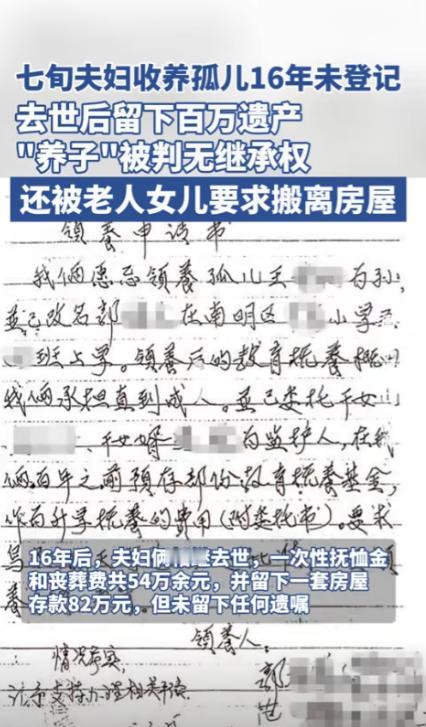 七旬夫妇收养孤儿16年未登记
去世后留下百万遗产
"养子"被判无继承权
还被老人女儿要求搬离房屋
领养申请书
我俩愿意领养孤儿王 为孙,
并已改名郭 在南明区 小学
班上学。领养后的教育抚养概
我俩承担直到成人。并已委托干女
、干女婿 为监护人,在我
俩百年之前预存部份教育抚养基金,
作为升学抚养的费用(附委托书)。要求
16年后,夫妇俩 去世,一次性抚恤金
和丧葬费共54万余元,并留下一套房屋
存款82万元,但未留下任何遗嘱
领养人:
情况属实 郭